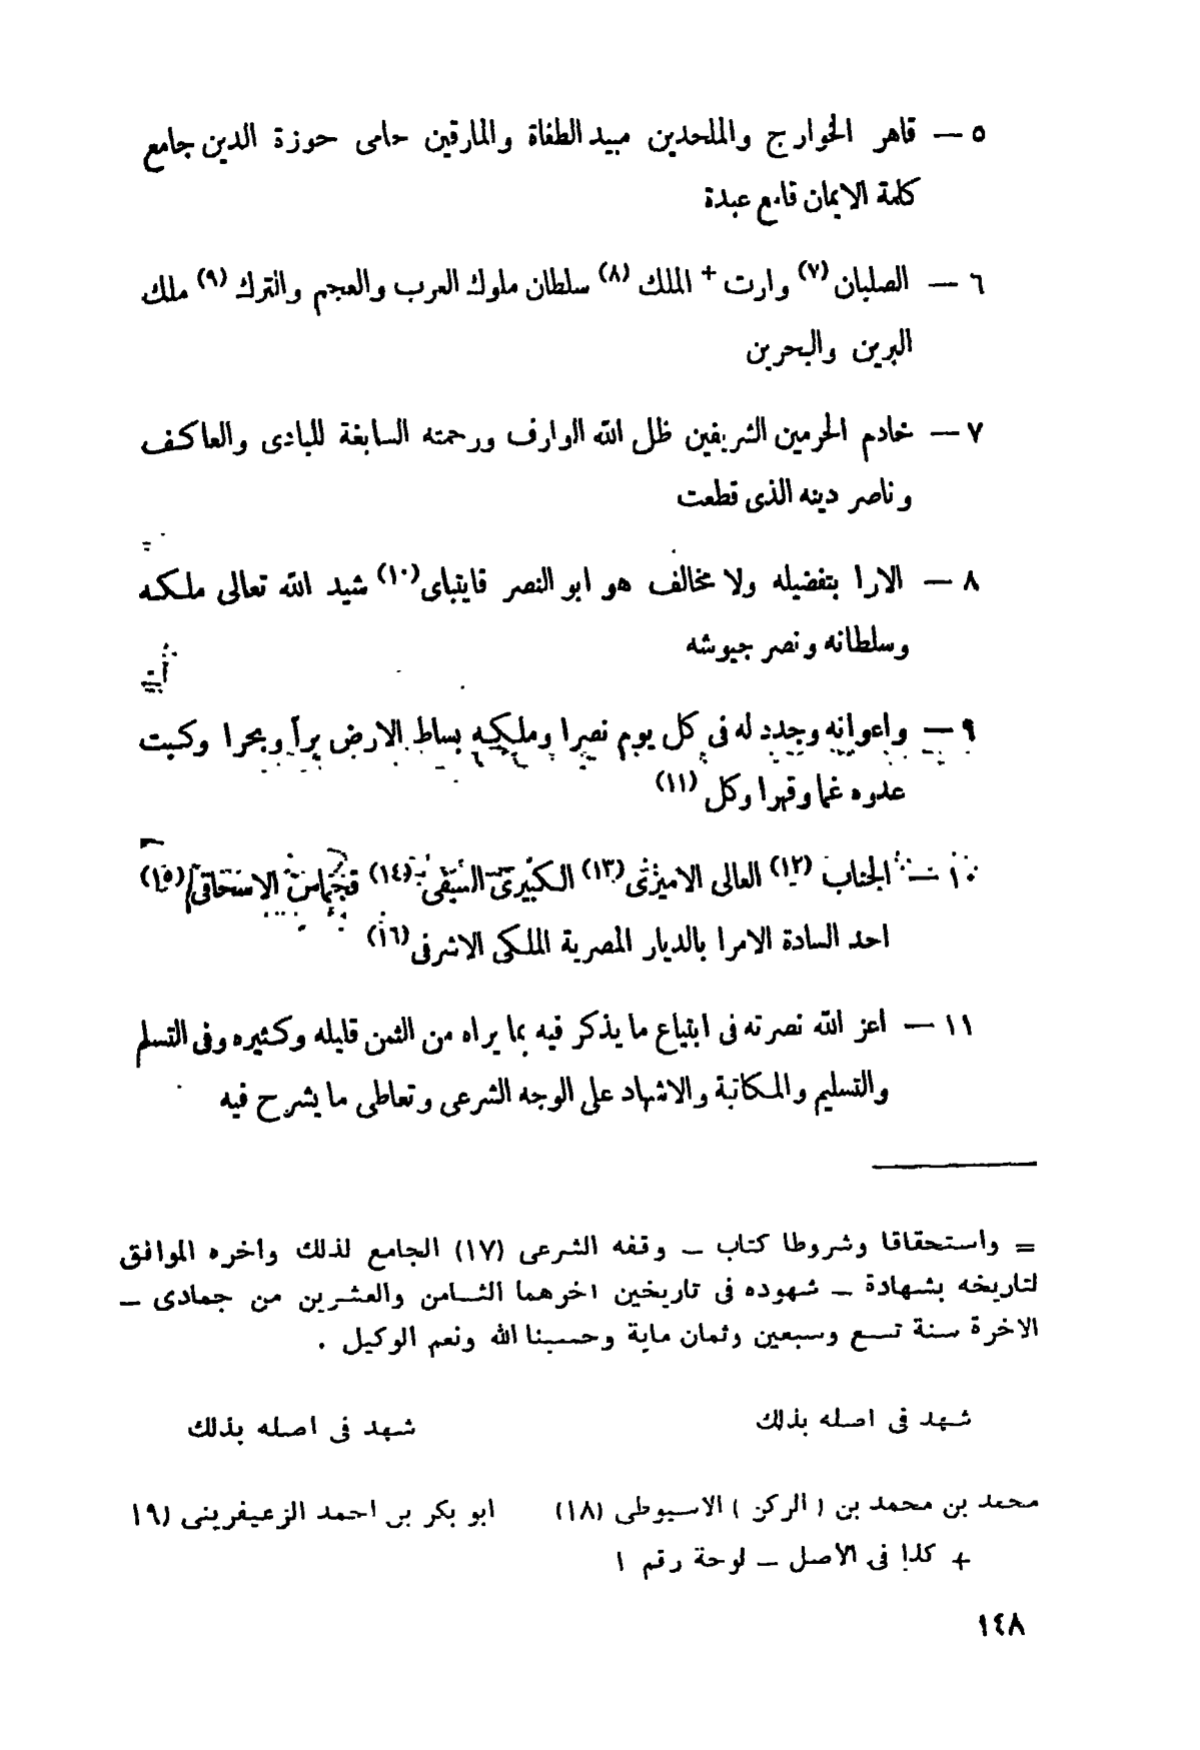 ٥ — قاهر الخوارج والملحدين مبيد الطغاة والمارقين حامى حوزة الدين جامع
كلمة الايمان قامع عبدة
٦ — الصلبان (٧) وارت + الملك (٨) سلطان ملوك العرب والعجم والترك (٩) ملك
البرين والبحرين
٧ — خادم الحرمين الشريفين ظل الله الوارف ورحمته السابغة للبادى والعاكف
وناصر دينه الذى قطعت
٨ — الارا بتفضيله ولا مخالف هو ابو النصر قايتباى (١٠) شيد الله تعالى ملكه
وسلطانه ونصر جيوشه
٩ — واعوانه وجدد له فى كل يوم نصرا وملكه بساط الارض براً وبحرا وكبت
عدوه غما وقهرا وكل (١١)
١٠ — الجناب (١٢) العالى الاميرى (١٣) الكبيرى السيفى (١٤) قجماس الاسحاقى (١٥)
احد السادة الامرا بالديار المصرية الملكى الاشرفى (١٦)
١١ — اعز الله نصرته فى ابتياع ما يذكر فيه بما يراه من الثمن قليله وكثيره وفى التسلم
والتسليم والمكاتبة والاشهاد على الوجه الشرعى وتعاطى ما يشرح فيه
= واستحقاقا وشروطا كتاب — وقفه الشرعى (١٧) الجامع لذلك واخره الموافق
لتاريخه بشهادة — شهوده فى تاريخين اخرهما الثامن والعشرين من جمادى —
الاخرة سنة تسع وسبعين وثمان ماية وحسبنا الله ونعم الوكيل .
شهد فى اصله بذلك شهد فى اصله بذلك
محمد بن محمد بن ( الركن ) الاسيوطى (١٨) ابو بكر بن احمد الزعيفرينى (١٩
+ كذا فى الأصل — لوحة رقم ١
١٤٨